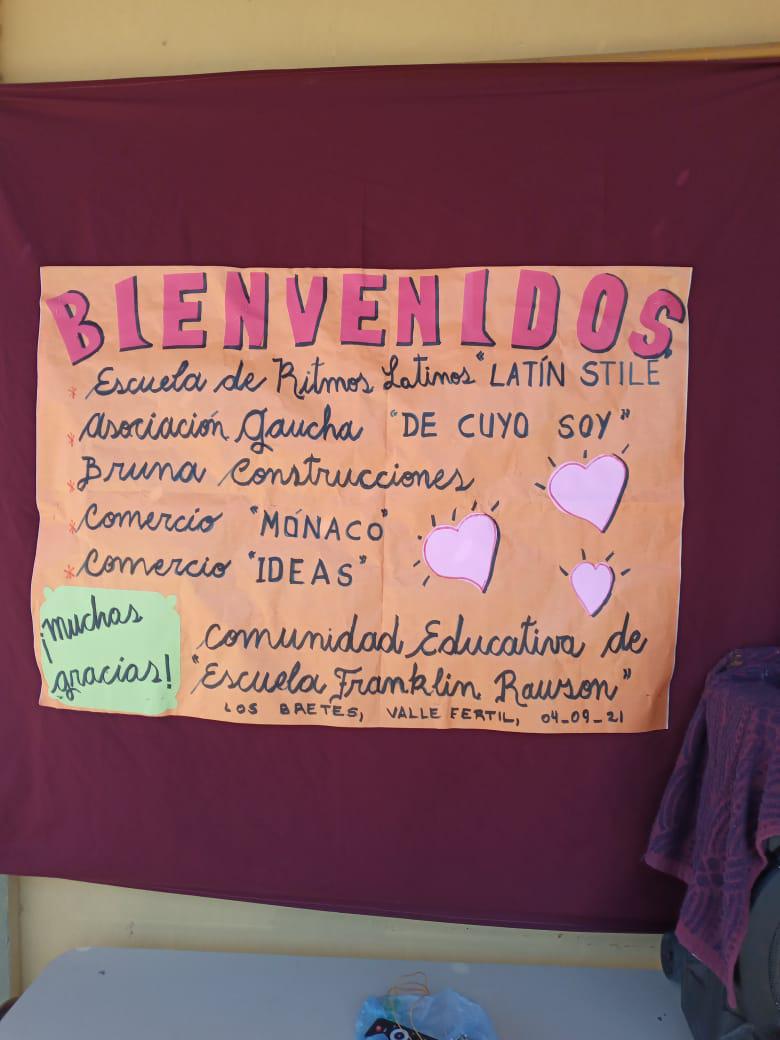 BIENVENIDOS
* Escuela de Ritmos Latinos "LATÍN STILE"
* Asociación Gaucha "DE CUYO SOY"
* Bruna Construcciones
* Comercio "MÓNACO"
* Comercio "IDEAS"
¡Muchas
gracias!
Comunidad Educativa de
"Escuela Franklin Rawson"
LOS BRETES, VALLE FERTIL, 04_09_21